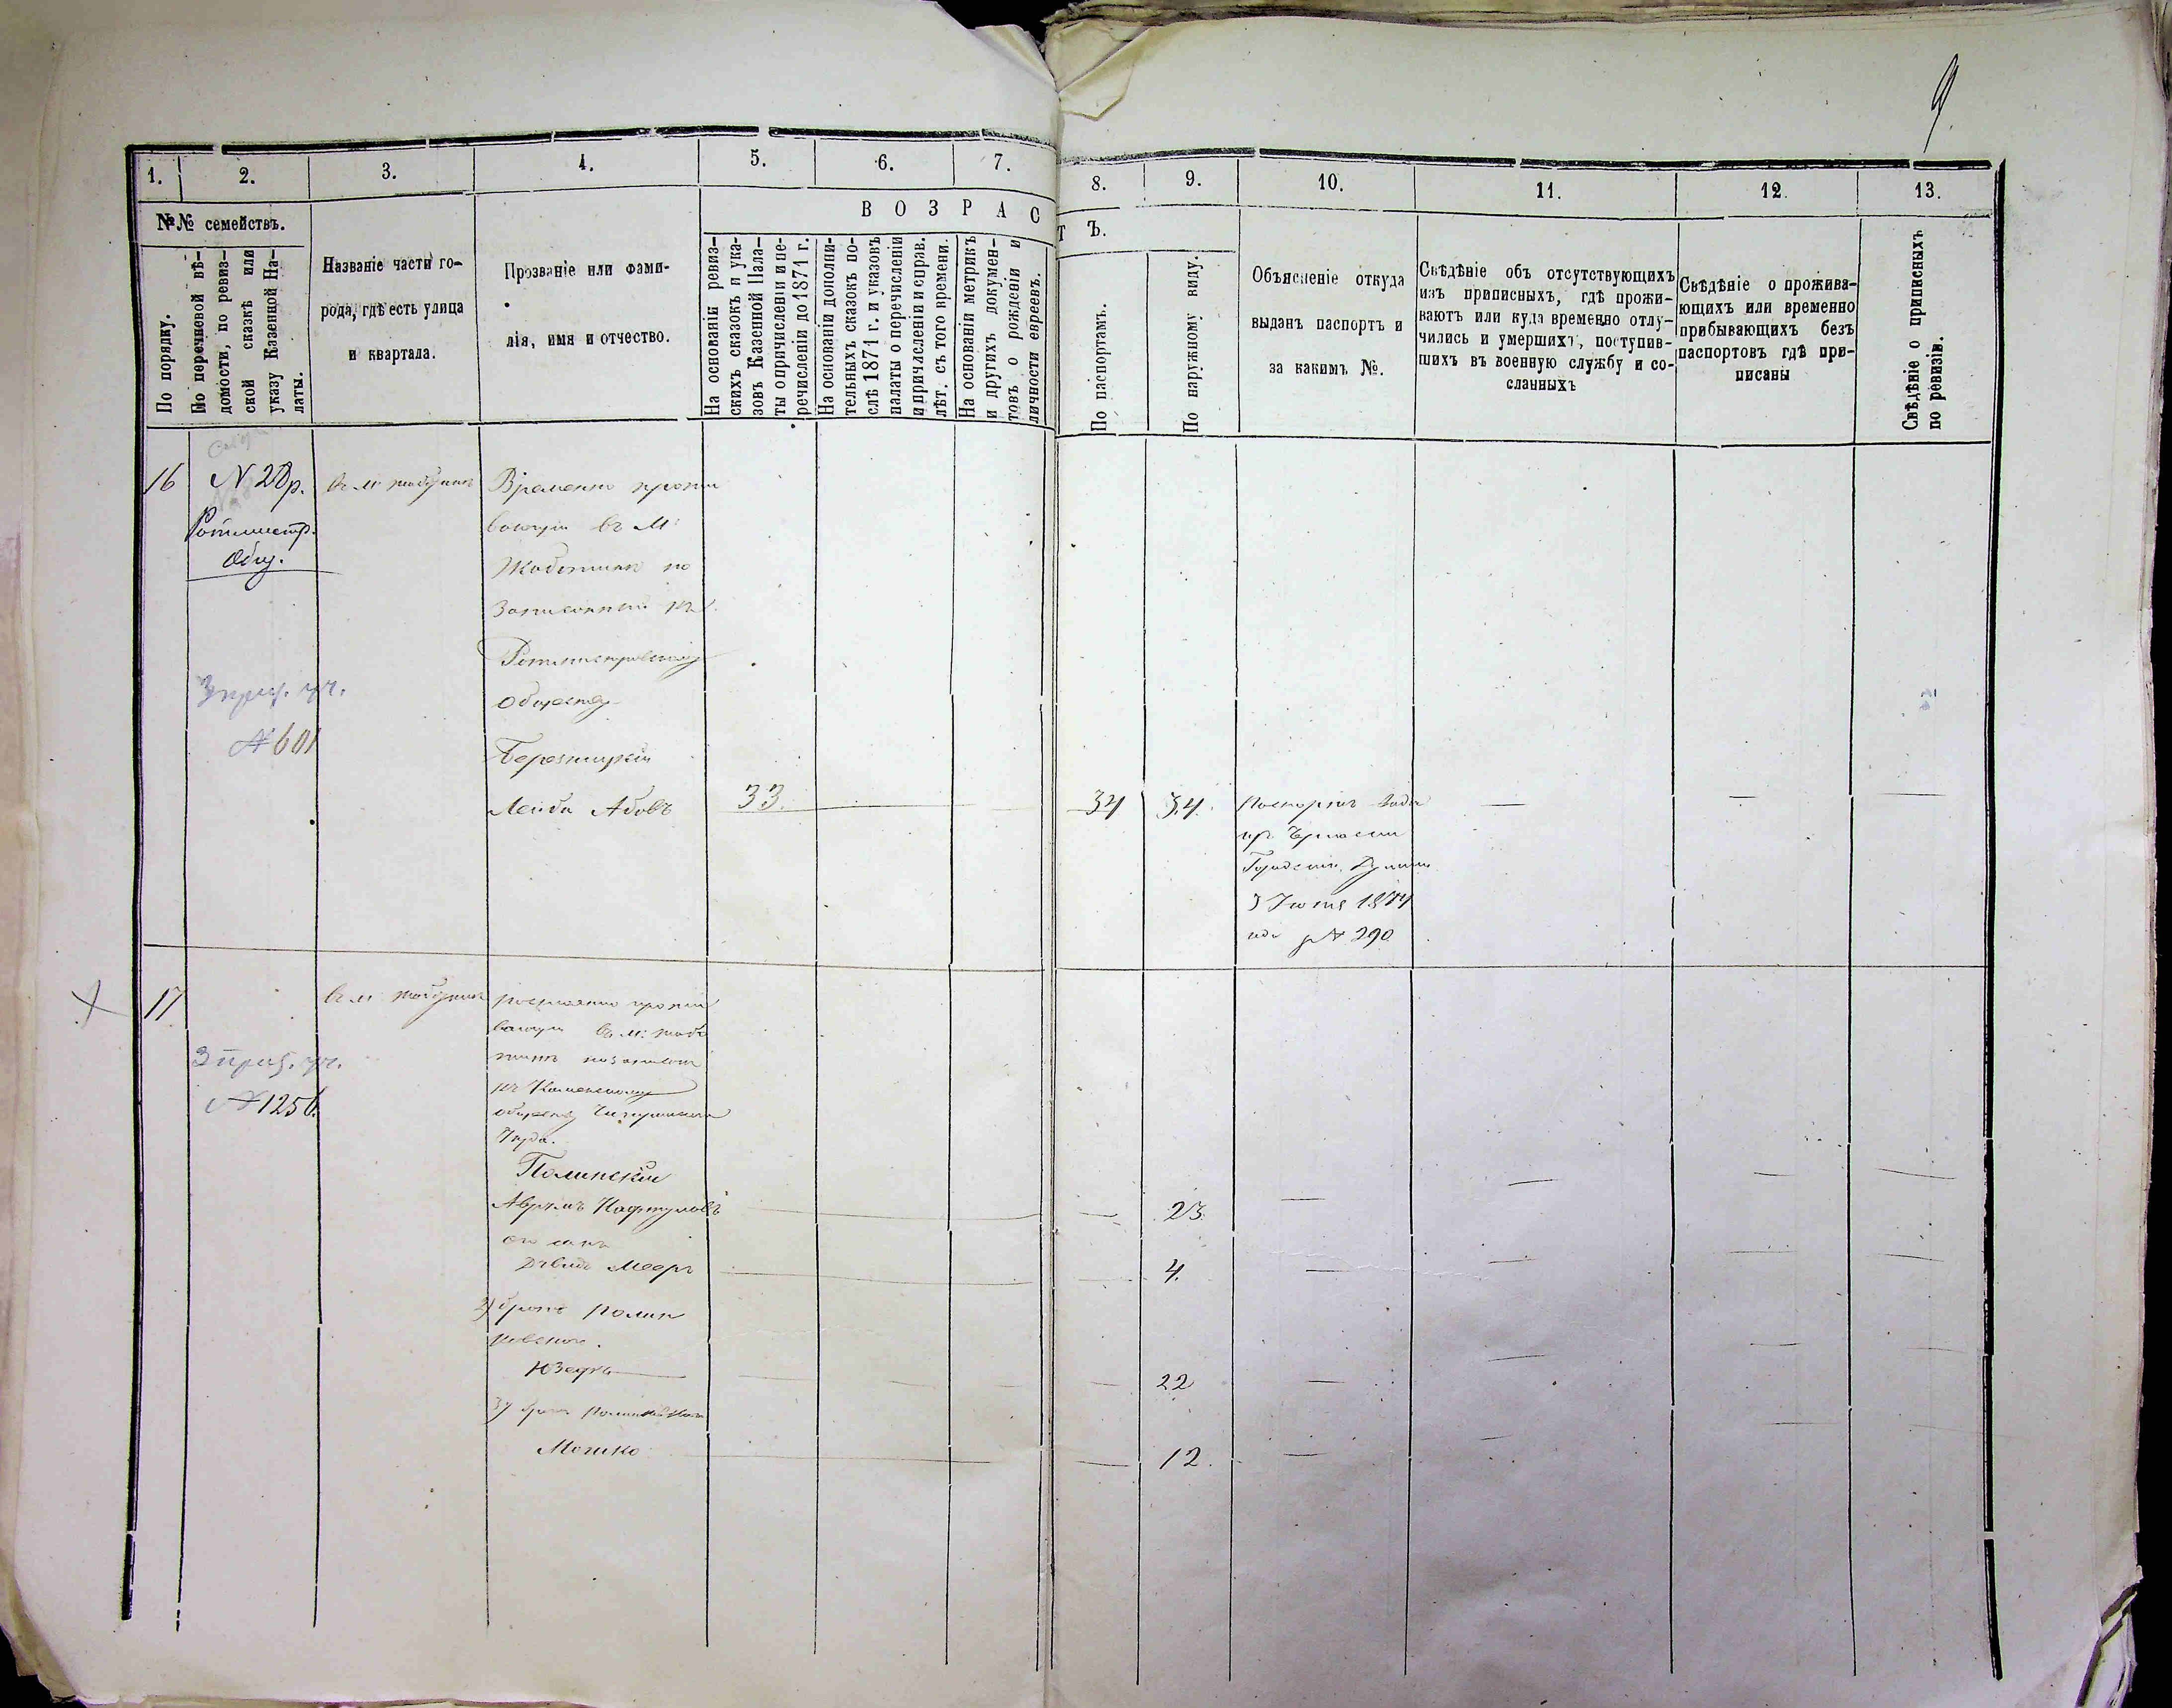 9
1.
2.
3.
4.
5.
6.
7.
8.
9.
10.
11.
12.
13.
№№ семействъ.
По порядку.
По перечневой вѣ-
домости, по ревиз-
ской сказкѣ или
указу Казенной Па-
латы.
Названіе части го-
рода, гдѣ есть улица
и квартала.
Прозваніе или фами-
лія, имя и отчество.
ВОЗРАС
ТЪ.
На основаніи ревиз-
скихъ сказокъ и ука-
зовъ Казенной Пала-
ты о причисленіи и пе-
речисленіи до 1871 г.
На основаніи дополни-
тельныхъ сказокъ по-
слѣ 1871 г. и указовъ
палаты о перечисленіи
и причисленіи и справ.
лѣт. съ того времени.
На основаніи метрикъ
и другихъ докумен-
товъ о рожденіи и
личности евреевъ.
По паспортамъ.
По наружному виду.
Объясненіе откуда
выданъ паспортъ и
за какимъ №.
Свѣдѣніе объ отсутствующихъ
изъ приписныхъ, гдѣ прожи-
ваютъ или куда временно отлу-
чились и умершихъ, поступив-
шихъ въ военную службу и со-
сланныхъ
Свѣдѣніе о прожива-
ющихъ или временно
прибывающихъ безъ
паспортовъ гдѣ при-
писаны
Свѣдѣніе о приписныхъ
по ревизіи.
16
N 28 р.
Ротмистр.
Общ.
3 приз. уч.
№ 601
въ м
Временно прожи
вающій въ м:
Жаботинѣ но
записанный къ
Ротмистровскому
обществу
Березницкій
Лейба Абовъ
33
34
34.
Паспортъ
Городской Думы
3 Іюня 1874
№ 290
17
въ м
3 приз. уч.
№ 1256.
постоянно прожи
вающій въ м: жабо
къ Каменскому
обществу Чигиринскаго
Уезда.
Полинскій
Аврумъ Нафтуловъ
23
его сынъ
Давидъ Мееръ
4.
2) братъ Полин
Юзефъ
22
3) братъ
Мошко
12.